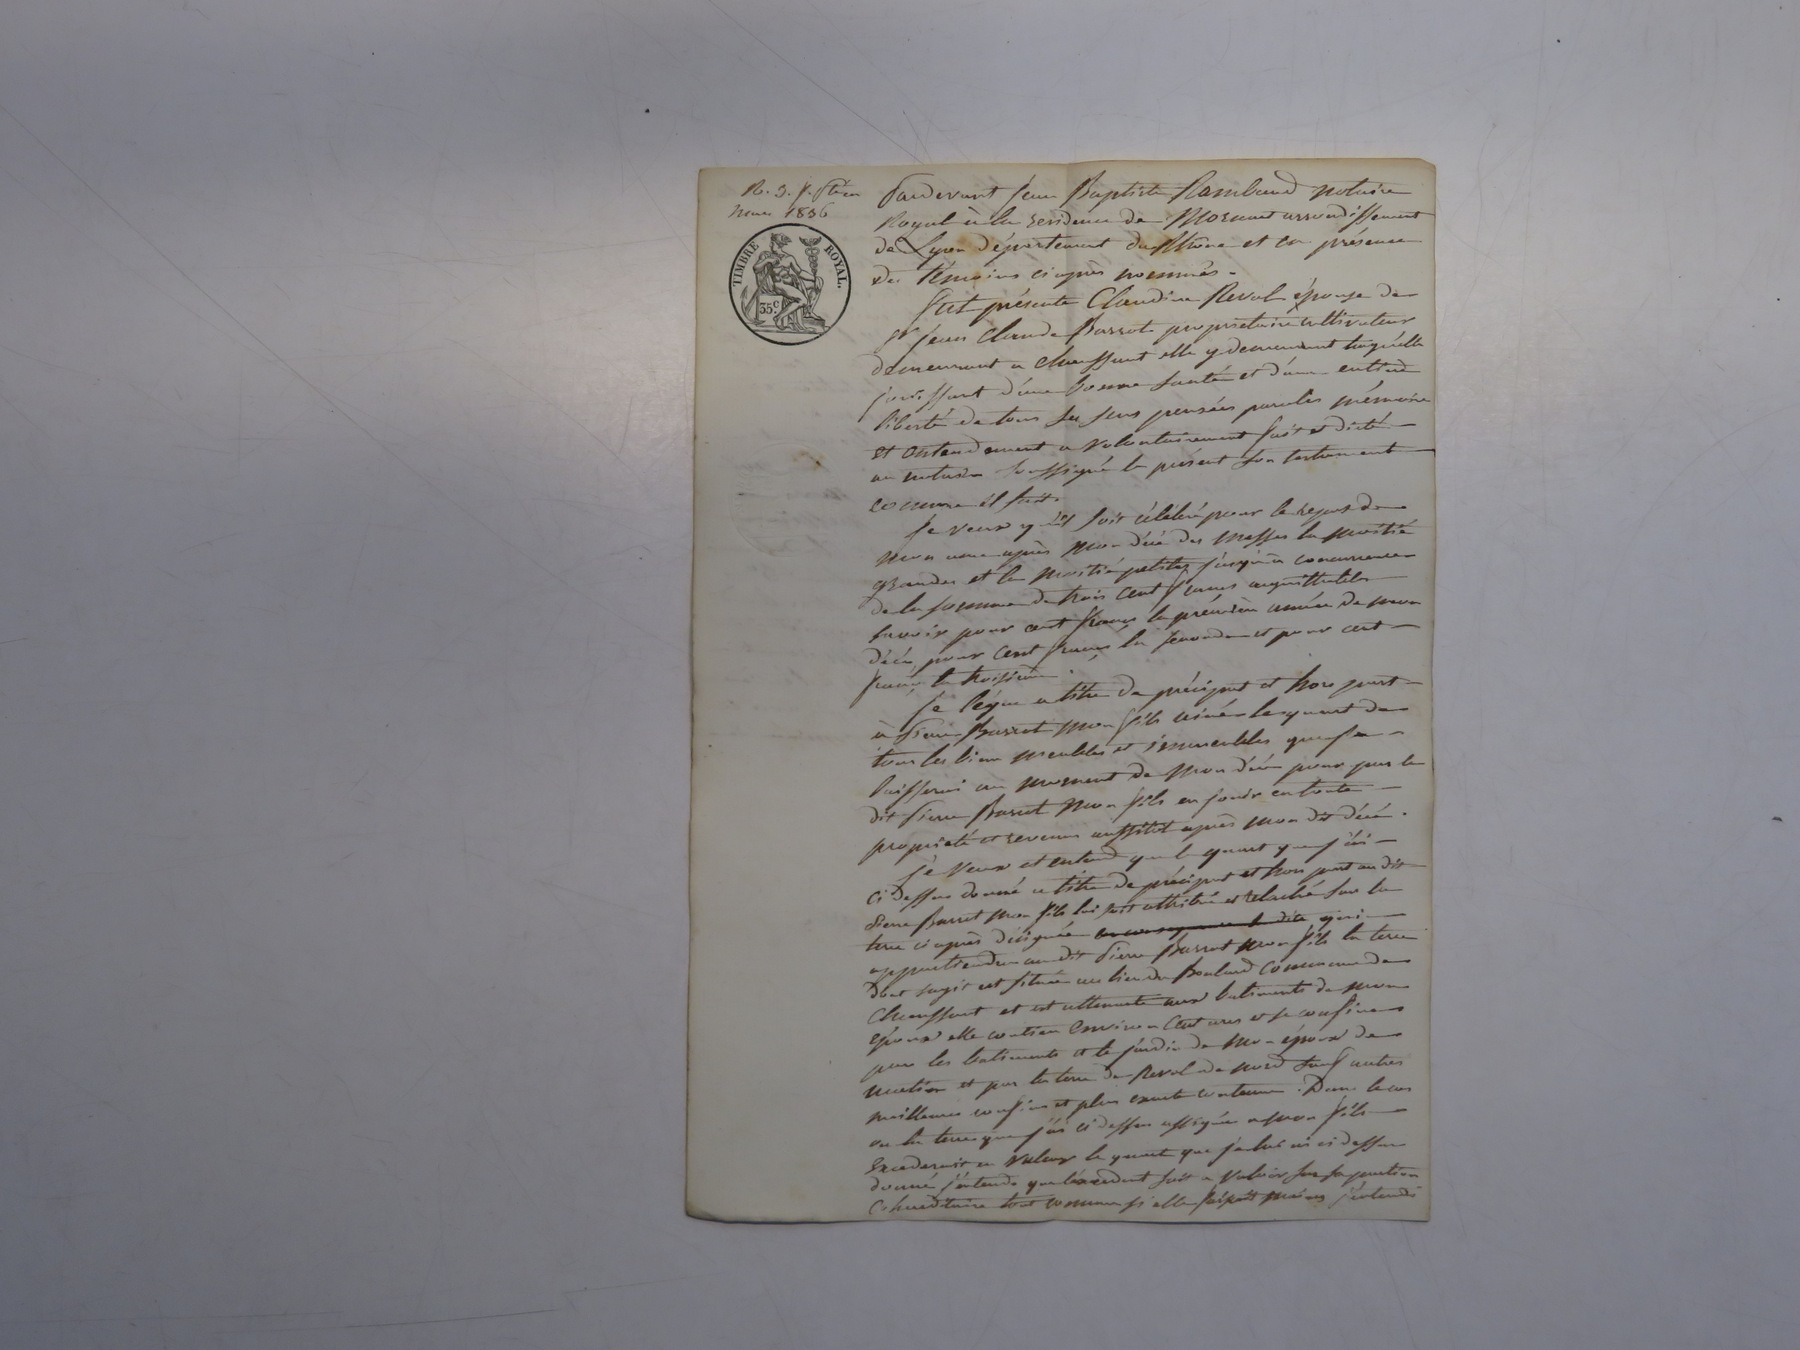 mars 1836
TIMBRE ROYAL.
35 c.
Pardevant Jean Baptiste Rambaud notaire
Royal à la residence de Mornant arrondissement
de Lyon département du Rhône et en présence
des témoins ciaprès nommés.
fut présente Claudine Reval épouse de
Sr Jean Claude Barrot propriétaire cultivateur
demeurant a Chaussant elle y demeurant laquelle
jouissant d'une bonne santé et d'une entière
liberté de tous ses sens pensées paroles mémoire
et entendement a volontairement fait et dicté
au notaire soussigné le présent son testament
comme il suit.
Je veux qu'il soit célébré pour le repos de
mon ame après mon décè des messes la moitié
grandes et la moitié petites jusqu'à concurrence
de la somme de trois cent francs acquittables
savoir pour cent francs la première année de mon
décè, pour cent francs la seconde et pour cent
francs la troisième
Je lègue a titre de préciput et hors part
à Pierre Barrot mon fils ainé le quart de
tous les bien meubles et immeubles que je
laisserai au moment de mon décè pour par le
dit Pierre Barrot mon fils en jouir en toute
propriété et revenu aussitot après mon dit décè.
Je veux et entend que le quart que j'ai
ci dessus donné a titre de préciput et hors part au dit
Pierre Barrot mon fils lui soit attribué et relaché sur la
terre ciaprès désignée en conséquence la dite qui
appartiendra au dit Pierre Barrot mon fils la terre
dont sagit est située au lieu du Boulard commune de
Chaussant et est attenante aux batiments de mon
époux elle contien environ cent ares et se confine
par les batiments et le jardin de mon époux de
matin et par la terre de Reval de nord sauf autres
meilleurs confins et plus exacte contenue. Dans le cas
ou la terre que j'ai ci dessus assignée a mon fils
excederait en valeur le quart que je lui ai ci dessus
donné j'entends que l'excédent soit a valoir sur sa portion
cohéréditaire tout comme si elle fesait moins j'entends